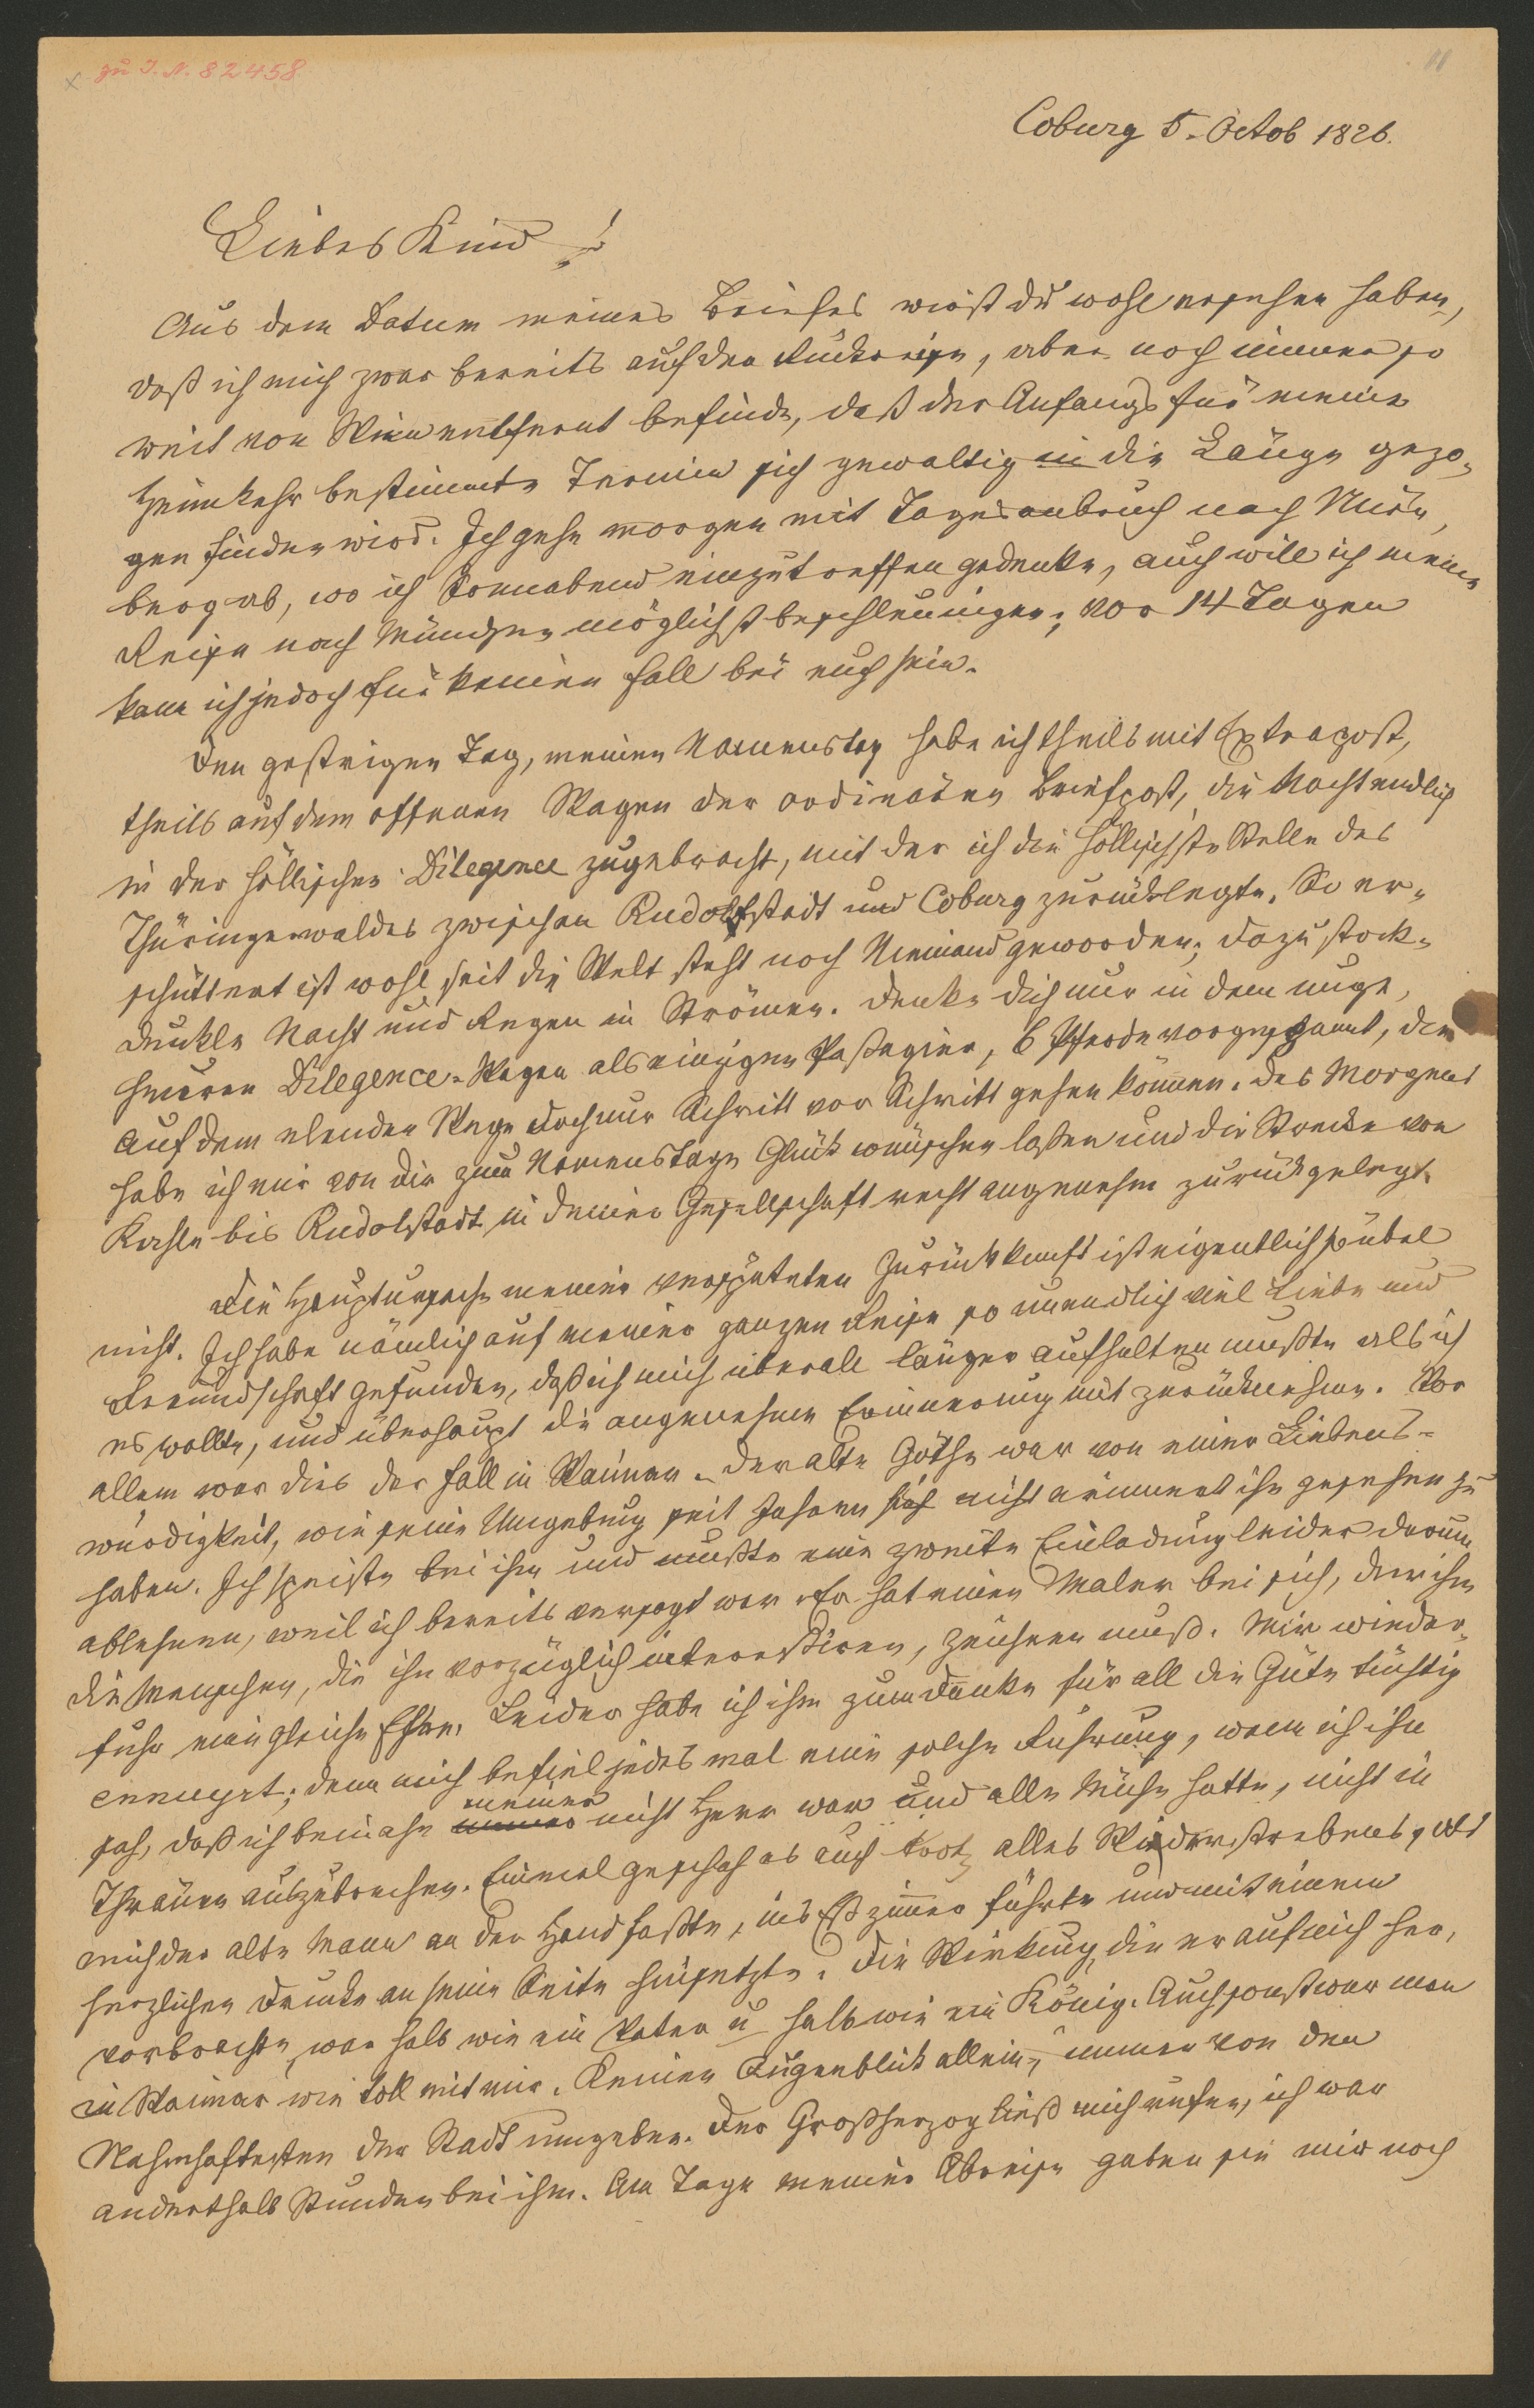 zu I. N. 82458
11
Coburg 5. Octob 1826.
Liebes Kind!
Aus dem Datum meines Briefes wirst du wohl ersehen haben,
daß ich mich zwar bereits auf der Rückreise, aber noch immer so
weit von Wien entfernt befinde, daß der Anfangs für meine
Heimkehr bestimmte Termin sich gewaltig in die Länge gezo-
gen finden wird. Ich gehe morgen mit Tagesanbruch nach Nürn-
berg ab, wo ich Sonnabend einzutreffen gedenke, auch will ich meine
Reise nach München möglichst beschleunigen; vor 14 Tagen
kann ich jedoch für keinen Fall bei euch sein.
Den gestrigen Tag, meinen Namenstag habe ich theils mit Extrapost,
theils auf dem offenen Wagen der ordinären Briefpost, die Nacht endlich
in der höllischen Diligence zugebracht, mit der ich die höllischste Stelle des
Thüringerwaldes zwischen Rudolstadt und Coburg zurücklegte. So er-
schüttert ist wohl seit die Welt steht noch Niemand geworden; dazu stock-
dunkle Nacht und Regen in Strömen. Denke dich nur in dem unge-
heueren Dilegence-Wagen als einzigen Passagier, 6 Pferde vorgespannt, die
auf dem elenden Wege doch nur Schritt vor Schritt gehen können. Des Morgens
habe ich mir von dir zum Namenstage Glück wünschen lassen und die Strecke von
Kahla bis Rudolstadt in deiner Gesellschaft recht angenehm zurückgelegt.
Die Hauptursache meiner verspäteten Zurückkunft ist eigentlich so übel
nicht. Ich habe nämlich auf meiner ganzen Reise so unendlich viel Liebe und
Freundschaft gefunden, daß ich mich überall länger aufhalten mußte als ich
es wollte, und überhaupt die angenehme Erinnerung mit zurücknehme. Vor
allem war dies der Fall in Weimar. Der alte Göthe war von einer Liebens-
würdigkeit, wie seine Umgebung seit Jahren sich nicht erinnert ihn gesehen zu
haben. Ich speiste bei ihm und mußte eine zweite Einladung leider darum
ablehnen, weil ich bereits versagt war. Er hat einen Maler bei sich, der ihm
die Menschen, die ihn vorzüglich interessiren, zeichnen muß. Mir wieder-
fuhr eine gleiche Ehre. Leider habe ich ihn zum Danke für all die Güte tüchtig
ennuyrt; denn mich befiel jedes mal eine solche Rührung, wenn ich ihn
sah, daß ich beinahe meiner nicht Herr war und alle Mühe hatte, nicht in
Thränen auszubrechen. Einmal geschah es auch trotz alles Widerstrebens, als
mich der alte Mann an der Hand faßte, ins Eßzimmer führte und mit einem
herzlichen Drucke an seine Seite hinsetzte. Die Wirkung, die er auf mich her-
vorbrachte, war halb wie ein Vater u halb wie ein König. Auch sonst war man
in Weimar wie toll mit mir. Keinen Augenblick allein, immer von den
Nahmhaftesten der Stadt umgeben. Der Großherzog ließ mich rufen, ich war
anderthalb Stunden bei ihm. Am Tage meiner Abreise gaben sie mir noch